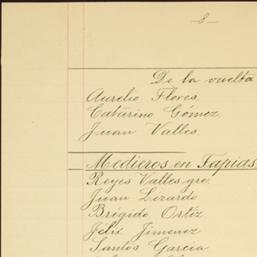 - 8 -
De la vuelta
Aurelio Flores.
Catarino Gómez.
Juan Valles.
Medieros en Tapias
Reyes Valles gre.
Juan Lozardo
Brigido Ortiz
Félix Jimenez
Santos Garcia